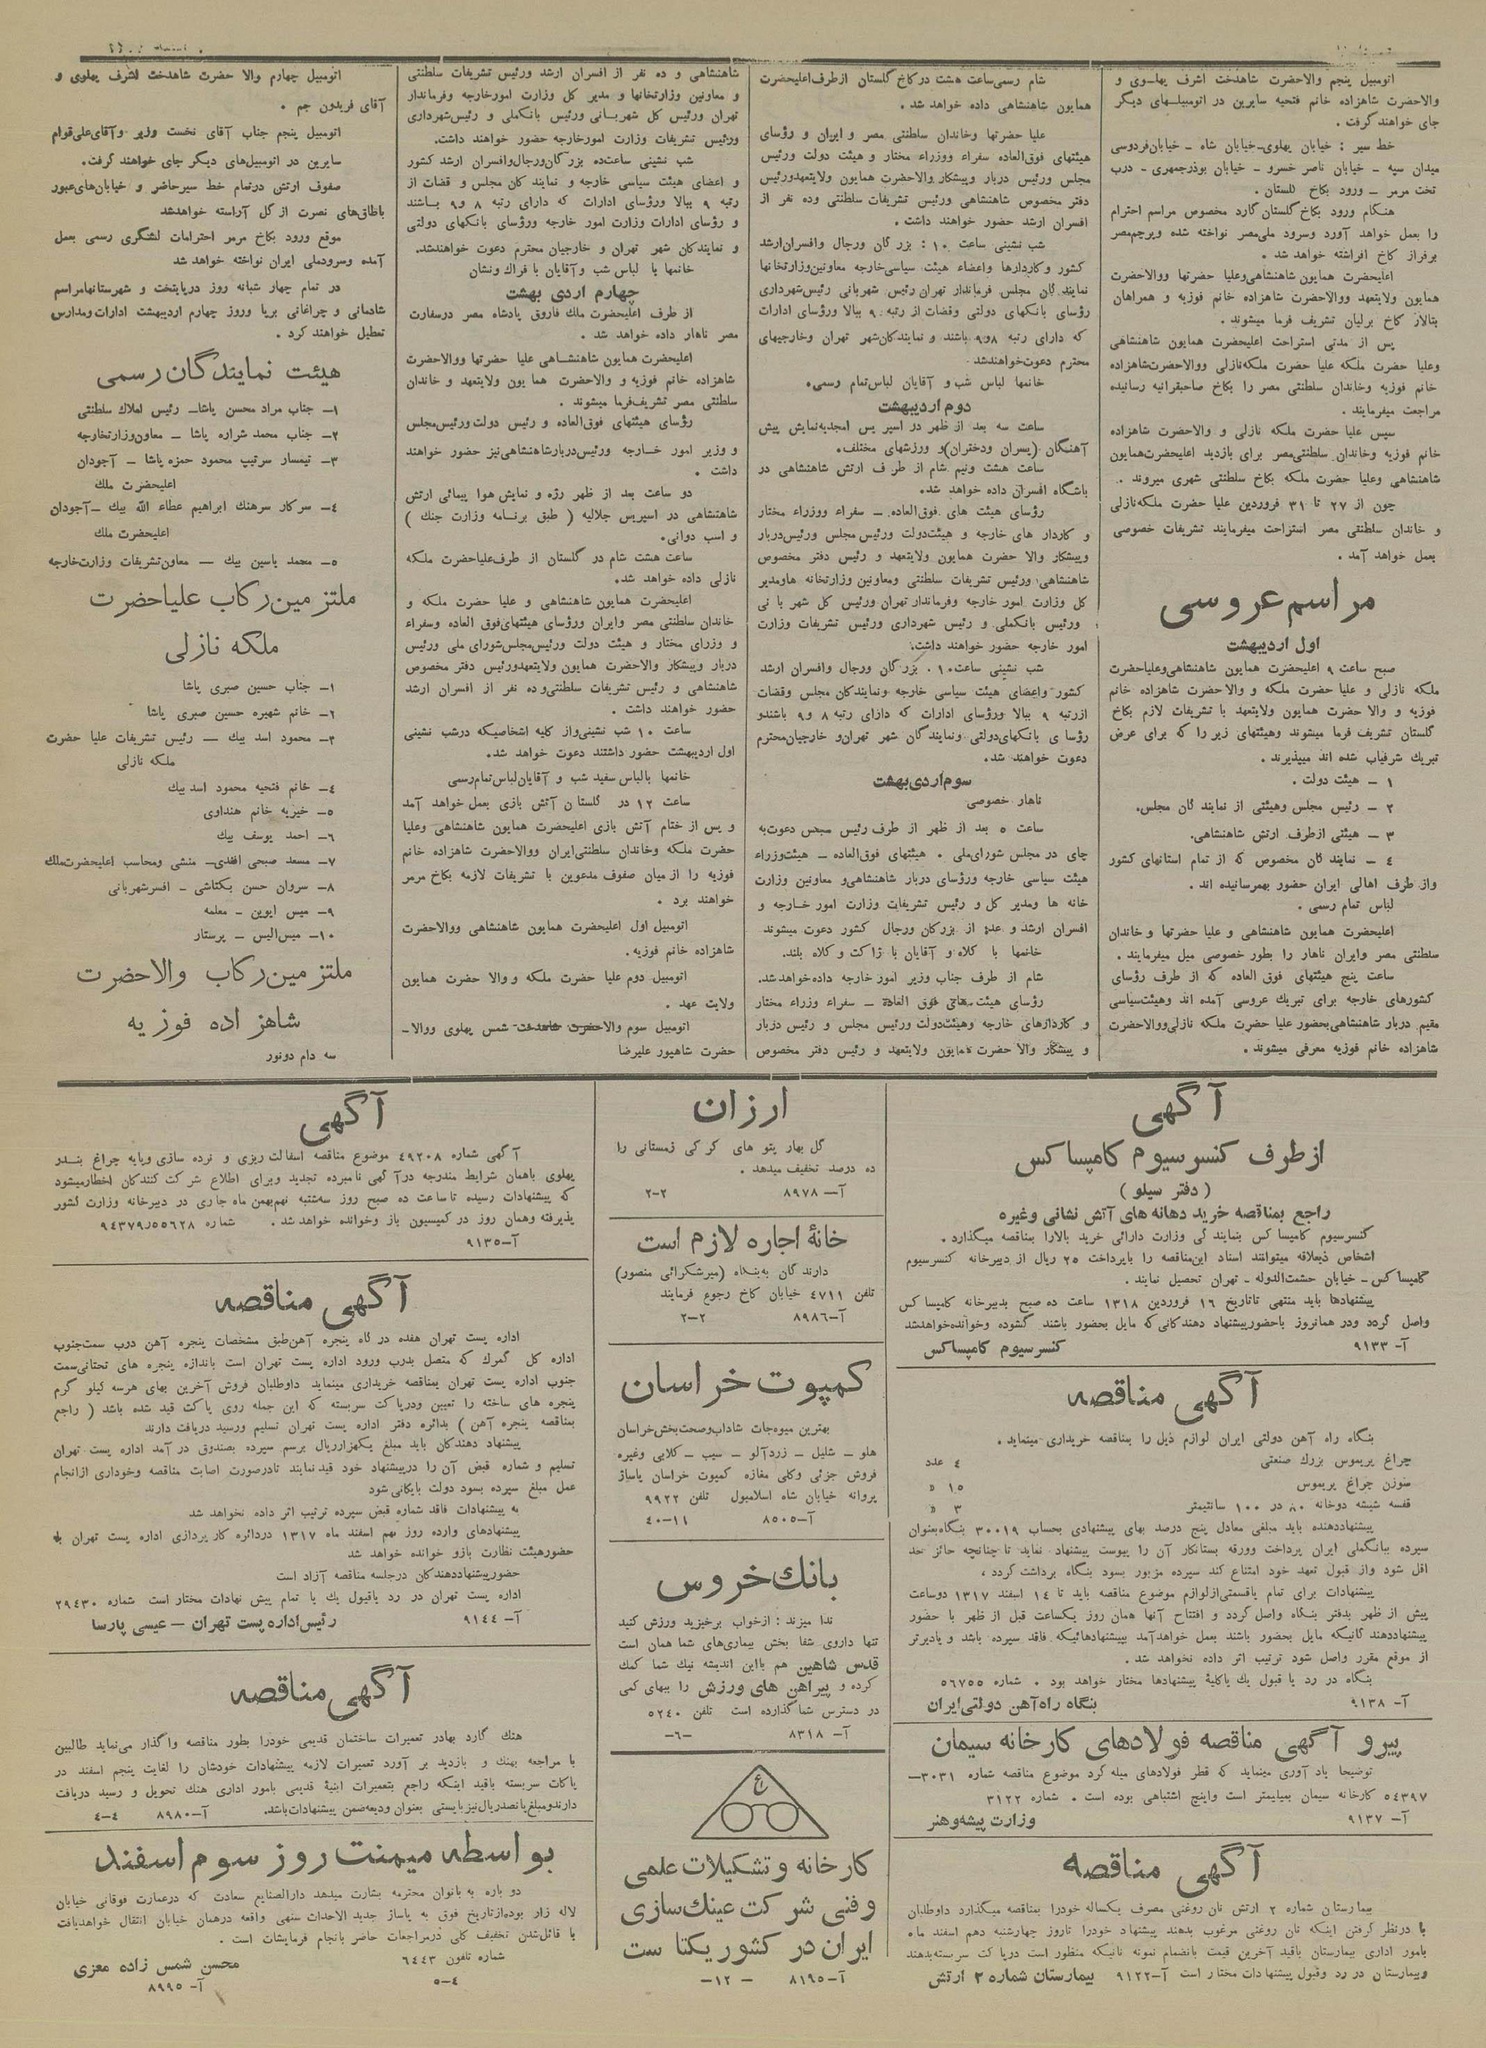 اتومبیل پنجم والاحضرت شاهدخت اشرف پهلوی و
والاحضرت شاهزاده خانم فتحیه سایرین در اتومبیلهای دیگر
جای خواهند گرفت .
خط سیر : خیابان پهلوی–خیابان شاه – خیابان‌فردوسی
میدان سپه – خیابان ناصر خسرو – خیابان بوذرجمهری – درب
تخت مرمر – ورود بکاخ گلستان .
هنگام ورود بکاخ گلستان گارد مخصوص مراسم احترام
را بعمل خواهد آورد وسرود ملی‌مصر نواخته شده وپرچم‌مصر
برفراز کاخ افراشته خواهد شد .
اعلیحضرت همایون شاهنشاهی‌وعلیا حضرتها ووالاحضرت
همایون ولایتعهد ووالاحضرت شاهزاده خانم فوزیه و همراهان
بتالار کاخ برلیان تشریف فرما میشوند .
پس از مدتی استراحت اعلیحضرت همایون شاهنشاهی
وعلیا حضرت ملکه علیا حضرت ملکه‌نازلی ووالاحضرت‌شاهزاده
خانم فوزیه وخاندان سلطنتی مصر را بکاخ صاحبقرانیه رسانیده
مراجعت میفرمایند .
سپس علیا حضرت ملکه نازلی و والاحضرت شاهزاده
خانم فوزیه وخاندان سلطنتی‌مصر برای بازدید اعلیحضرت‌همایون
شاهنشاهی وعلیا حضرت ملکه بکاخ سلطنتی شهری میروند .
چون از ۲۷ تا ۳۱ فروردین علیا حضرت ملکه‌نازلی
و خاندان سلطنتی مصر استراحت میفرمایند تشریفات خصوصی
بعمل خواهد آمد .
مراسم عروسی
اول اردیبهشت
صبح ساعت ۹ اعلیحضرت همایون شاهنشاهی‌وعلیاحضرت
ملکه نازلی و علیا حضرت ملکه و والا حضرت شاهزاده خانم
فوزیه و والا حضرت همایون ولایتعهد با تشریفات لازم بکاخ
گلستان تشریف فرما میشوند وهیئتهای زیر را که برای عرض
تبریک شرفیاب شده اند میپذیرند .
۱ – هیئت دولت .
۲ – رئیس مجلس وهیئتی از نمایند گان مجلس.
۳ – هیئتی ازطرف ارتش شاهنشاهی.
۴ – نمایند گان مخصوص که از تمام استانهای کشور
واز طرف اهالی ایران حضور بهمرسانیده اند .
لباس تمام رسمی .
اعلیحضرت همایون شاهنشاهی و علیا حضرتها و خاندان
سلطنتی مصر وایران ناهار را بطور خصوصی میل میفرمایند .
ساعت پنج هیئتهای فوق العاده که از طرف رؤسای
کشورهای خارجه برای تبریک عروسی آمده اند وهیئت‌سیاسی
مقیم دربار شاهنشاهی‌بحضور علیا حضرت ملکه نازلی‌ووالاحضرت
شاهزاده خانم فوزیه معرفی میشوند .
شام رسمی‌ساعت هشت درکاخ گلستان ازطرف‌اعلیحضرت
همایون شاهنشاهی داده خواهد شد.
علیا حضرتها وخاندان سلطنتی مصر و ایران و رؤسای
هیئتهای فوق‌العاده سفراء ووزراء مختار و هیئت دولت ورئیس
مجلس ورئیس دربار وپیشکار والاحضرت همایون ولایتعهدورئیس
دفتر مخصوص شاهنشاهی ورئیس تشریفات سلطنتی وده نفر از
افسران ارشد حضور خواهند داشت .
شب نشینی ساعت ۱۰ : بزر گان ورجال وافسران‌ارشد
کشور وکاردارها واعضاء هیئت سیاسی‌خارجه معاونین‌وزارتخانها
نمایند گان مجلس فرماندار تهران رئیس شهربانی رئیس‌شهرداری
رؤسای بانکهای دولتی وقضات از رتبه ۹ ببالا ورؤسای ادارات
که دارای رتبه ۸و۹ باشند و نمایندکان‌شهر تهران وخارجیهای
محترم دعوت‌خواهندشد
خانمها لباس شب و آقایان لباس‌تمام رسمی.
دوم اردیبهشت
ساعت سه بعد از ظهر در اسپر یس امجدیه‌نمایش پیش
آهنگان (پسران ودختران)و ورزشهای مختلف.
ساعت هشت ونیم شام از طرف ارتش شاهنشاهی در
باشگاه افسران داده خواهد شد.
رؤسای هیئت های فوق‌العاده – سفراء ووزراء مختار
و کاردار های خارجه و هیئت‌دولت ورئیس مجلس ورئیس‌دربار
وپیشکار والا حضرت همایون ولایتعهد و رئیس دفتر مخصوص
شاهنشاهی ورئیس تشریفات سلطنتی ومعاونین وزارتخانه هاومدیر
کل وزارت امور خارجه وفرماندار تهران ورئیس کل شهر با نی
ورئیس بانکملی و رئیس شهرداری ورئیس تشریفات وزارت
امور خارجه حضور خواهند داشت.
شب نشینی ساعت۱۰ . بزر گان ورجال وافسران ارشد
کشور واعضای هیئت سیاسی خارجه ونمایندکان مجلس وقضات
ازرتبه ۹ ببالا ورؤسای ادارات که دارای رتبه ۸ و۹ باشندو
رؤسا ی بانکهای‌دولتی ونمایندگان شهر تهران‌و خارجیان‌محترم
دعوت خواهند شد.
سوم‌اردی‌بهشت
ناهار خصوصی
ساعت ۵ بعد از ظهر از طرف رئیس مجلس دعوت‌به
چای در مجلس شورای‌ملی . هیئتهای فوق‌العاده – هیئت‌وزراء
هیئت سیاسی خارجه ورؤسای دربار شاهنشاهی‌و معاونین وزارت
خانه ها ومدیر کل و رئیس تشریفات وزارت امور خارجه و
افسران ارشد و عده از بزرکان ورجال کشور دعوت میشوند
خانمها با کلاه و آقایان با ژاکت و کلاه بلند.
شام از طرف جناب وزیر امور خارجه داده‌خواهدشد.
رؤسای هیئت‌های فوق العاده – سفراء وزراء مختار
و کاردارهای خارجه وهیئت‌دولت ورئیس مجلس و رئیس دربار
و پیشکار والا حضرت همایون ولایتعهد و رئیس دفتر مخصوص
شاهنشاهی و ده نفر از افسران ارشد ورئیس تشریفات سلطنتی
و معاونین وزارتخانها و مدیر کل وزارت امورخارجه وفرماندار
تهران ورئیس کل شهربانی ورئیس بانکملی و رئیس‌شهرداری
ورئیس تشریفات وزارت امورخارجه حضور خواهند داشت.
شب نشینی ساعت‌ده بزر گان‌ورجال‌وافسران ارشد کشور
و اعضای هیئت سیاسی خارجه و نمایند کان مجلس و قضات از
رتبه ۹ ببالا ورؤسای ادارات که دارای رتبه ۸ و۹ باشند
و رؤسای ادارات وزارت امور خارجه ورؤسای بانکهای دولتی
و نمایندکان شهر تهران و خارجیان محترم دعوت خواهندشد.
خانمها یا لباس شب وآقایان با فراک ونشان
چهارم اردی بهشت
از طرف اعلیحضرت ملک فاروق پادشاه مصر درسفارت
مصر ناهار داده خواهد شد .
اعلیحضرت همایون شاهنشاهی علیا حضرتها ووالاحضرت
شاهزاده خانم فوزیه و والاحضرت هما یون ولایتعهد و خاندان
سلطنتی مصر تشریف‌فرما میشوند .
رؤسای هیئتهای فوق‌العاده و رئیس دولت ورئیس‌مجلس
و وزیر امور خارجه ورئیس‌دربارشاهنشاهی‌نیز حضور خواهند
داشت .
دو ساعت بعد از ظهر رژه و نمایش هوا پیمائی ارتش
شاهنشاهی در اسپریس جلالیه ( طبق برنامه وزارت جنک )
و اسب دوانی.
ساعت هشت شام در گلستان از طرف‌علیاحضرت ملکه
نازلی داده خواهد شد.
اعلیحضرت همایون شاهنشاهی و علیا حضرت ملکه و
خاندان سلطنتی مصر وایران ورؤسای هیئتهای‌فوق العاده وسفراء
و وزرای مختار و هیئت دولت ورئیس‌مجلس‌شورای ملی ورئیس
دربار وپیشکار والاحضرت همایون ولایتعهدورئیس دفتر مخصوص
شاهنشاهی و رئیس تشریفات سلطنتی‌وده نفر از افسران ارشد
حضور خواهند داشت .
ساعت ۱۰ شب نشینی‌واز کلیه اشخاصیکه درشب نشینی
اول اردیبهشت حضور داشتند دعوت خواهد شد.
خانمها بالباس سفید شب و آقایان‌لباس‌تمام‌رسمی
ساعت ۱۲ در گلستان آتش بازی بعمل خواهد آمد
و پس از ختام آتش بازی اعلیحضرت همایون شاهنشاهی وعلیا
حضرت ملکه وخاندان سلطنتی‌ایران ووالاحضرت شاهزاده خانم
فوزیه را از میان صفوف مدعوین با تشریفات لازمه بکاخ مرمر
خواهند برد .
اتومبیل اول اعلیحضرت همایون شاهنشاهی ووالاحضرت
شاهزاده خانم فوزیه.
اتومبیل دوم علیا حضرت ملکه و والا حضرت همایون
ولایت عهد .
اتومبیل سوم والاحضرت شاهدخت شمس پهلوی ووالا–
حضرت شاهپور علیرضا
اتومبیل چهارم والا حضرت شاهدخت اشرف پهلوی و
آقای فریدون جم .
اتومبیل پنجم جناب آقای نخست وزیر وآقای‌علی‌قوام
سایرین در اتومبیل‌های دیگر جای خواهند گرفت.
صفوف ارتش درتمام خط سیرحاضر و خیابان‌های‌عبور
باطاق‌های نصرت از گل آراسته خواهدشد
موقع ورود بکاخ مرمر احترامات لشگری رسمی بعمل
آمده وسرودملی ایران نواخته خواهد شد
در تمام چهار شبانه روز درپایتخت و شهرستانهامراسم
شادمانی و چراغانی برپا وروز چهارم اردیبهشت ادارات ومدارس
تعطیل خواهند کرد .
هیئت نمایندگان رسمی
۱– جناب مراد محسن پاشا– رئیس املاک سلطنتی
۲– جناب محمد شراره پاشا – معاون‌وزارتخارجه
۳– تیمسار سرتیپ محمود حمزه پاشا – آجودان
اعلیحضرت ملک
۴– سرکار سرهنک ابراهیم عطاء الله بیک –آجودان
اعلیحضرت ملک
۵– محمد یاسین بیک – معاون‌تشریفات وزارت‌خارجه
ملتزمین رکاب علیاحضرت
ملکه نازلی
۱– جناب حسین صبری پاشا
۲– خانم شهیره حسین صبری پاشا
۳– محمود اسد بیک – رئیس تشریفات علیا حضرت
ملکه نازلی
۴– خانم فتحیه محمود اسد بیک
۵– خیزیه خانم هنداوی
۶– احمد یوسف بیک
۷– مسعد صبحی افندی– منشی ومحاسب اعلیحضرت‌ملکه
۸– سروان حسن بکتاشی – افسرشهربانی
۹– میس ایوین – معلمه
۱۰– میس‌الیس – پرستار
ملتزمین رکاب والاحضرت
شاهزاده فوزیه
سه دام دونور
آگهی
ازطرف کنسرسیوم کامپساکس
( دفتر سیلو )
راجع بمناقصه خرید دهانه های آتش نشانی وغیره
کنسرسیوم کامپساکس بنمایند گی وزارت دارائی خرید بالارا بمناقصه میگذارد.
اشخاص ذیعلاقه میتوانند اسناد این‌مناقصه را باپرداخت ۲۵ ریال از دبیرخانه کنسرسیوم
کامپساکس – خیابان حشمت‌الدوله – تهران تحصیل نمایند .
پیشنهادها باید منتهی تاتاریخ ۱۶ فروردین ۱۳۱۸ ساعت ده صبح بدبیرخانه کامپساکس
واصل گردد ودر همانروز باحضورپیشنهاد دهندکانی‌که مایل بحضور باشند گشوده وخوانده‌خواهدشد
آ– ۹۱۳۳ کنسرسیوم کامپساکس
آگهی مناقصه
بنگاه راه آهن دولتی ایران لوازم ذیل را بمناقصه خریداری مینماید .
چراغ پریموس بزرک صنعتی ۴ عدد
سوزن چراغ پریموس ۱۵ »
قفسه شیشه دوخانه ۸۰ در ۱۰۰ سانتیمتر ۳ »
پیشنهاددهنده باید مبلغی معادل پنج درصد بهای پیشنهادی بحساب ۳۰۰۱۹ بنگاه‌بعنوان
سپرده ببانکملی ایران پرداخت وورقه بستانکار آن را پیوست پیشنهاد نماید تا چنانچه حائز حد
اقل شود واز قبول تعهد خود امتناع کند سپرده مزبور بسود بنگاه برداشت گردد .
پیشنهادات برای تمام یاقسمتی‌ازلوازم موضوع مناقصه باید تا ۱۴ اسفند ۱۳۱۷ دوساعت
پیش از ظهر بدفتر بنگاه واصل‌گردد و افتتاح آنها همان روز یکساعت قبل از ظهر با حضور
پیشنهاددهند گانیکه مایل بحضور باشند بعمل خواهدآمد بپیشنهادهائیکه فاقد سپرده باشد و یادیرتر
از موقع مقرر واصل شود ترتیب اثر داده نخواهد شد .
بنگاه در رد یا قبول یک یاکلیهٔ پیشنهادها مختار خواهد بود . شماره ۵۶۷۵۵
آ– ۹۱۳۸ بنگاه راه‌آهن دولتی‌ایران
پیرو آگهی مناقصه فولادهای کارخانه سیمان
توضیحا یاد آوری مینماید که قطر فولادهای میله گرد موضوع مناقصه شماره ۳۰۳۱–
۵۴۳۹۷ کارخانه سیمان بمیلیمتر است واینچ اشتباهی بوده است . شماره ۳۱۲۲
آ– ۹۱۳۷ وزارت پیشه‌وهنر
آگهی مناقصه
بیمارستان شماره ۲ ارتش نان روغنی مصرف یکساله خودرا بمناقصه میگذارد داوطلبان
با درنظر گرفتن اینکه نان روغنی مرغوب بدهند پیشنهاد خودرا تاروز چهارشنبه دهم اسفند ماه
بامور اداری بیمارستان باقید آخرین قیمت بانضمام نمونه نانیکه منظور است درپا کت سربسته‌بدهند
وبیمارستان در رد وقبول پیشنهادات مختار است آ–۹۱۲۲ بیمارستان شماره ۲ ارتش
ارزان
گل بهار پتو های کر کی زمستانی را
ده درصد تخفیف میدهد .
آ– ۸۹۷۸ ۲–۲
خانهٔ اجاره لازم است
دارند گان به‌بنگاه (میرشکرائی منصور)
تلفن ۴۷۱۱ خیابان کاخ رجوع فرمایند
آ–۸۹۸۶ ۲–۲
کمپوت خراسان
بهترین میوه‌جات شاداب‌وصحت‌بخش‌خراسان
هلو – شلیل – زردآلو – سیب – گلابی وغیره
فروش جزئی وکلی مغازه کمپوت خراسان پاساژ
پروانه خیابان شاه اسلامبول تلفن ۹۹۲۲
آ–۸۵۰۵ ۱۱–۴۰
بانک خروس
ندا میزند : ازخواب برخیزید ورزش کنید
تنها داروی شفا بخش بیماری‌های شما همان است
قدس شاهین هم بااین اندیشه نیک شما کمک
کرده و پیراهن های ورزش را ببهای کمی
در دسترس شما گذارده است تلفن ۵۲۴۰
آ– ۸۳۱۸ –۶–
ع
کارخانه و تشکیلات علمی
وفنی شرکت عینک‌سازی
ایران در کشور یکتا ست
آ–۸۱۹۵ – ۱۲–
آگهی
آگهی شماره ۴۹۲۰۸ موضوع مناقصه اسفالت ریزی و نرده سازی وپایه چراغ بندر
پهلوی باهمان شرایط مندرجه درآ گهی نامبرده تجدید وبرای اطلاع شرکت کنندکان اخطارمیشود
که پیشنهادات رسیده تا ساعت ده صبح روز سه‌شنبه نهم‌بهمن ماه جاری در دبیرخانه وزارت کشور
پذیرفته وهمان روز در کمیسیون باز وخوانده خواهد شد . شماره ۹۴۳۷۹ر۵۵۶۲۸
آ–۹۱۳۵
آگهی مناقصه
اداره پست تهران هفده در گاه پنجره آهن‌طبق مشخصات پنجره آهن درب سمت‌جنوب
اداره کل گمرک که متصل بدرب ورود اداره پست تهران است باندازه پنجره های تحتانی‌سمت
جنوب اداره پست تهران بمناقصه خریداری مینماید داوطلبان فروش آخرین بهای هرسه کیلو گرم
پنجره های ساخته را تعیین ودرپاکت سربسته که این جمله روی پاکت قید شده باشد ( راجع
بمناقصه پنجره آهن ) بدائره دفتر اداره پست تهران تسلیم ورسید دریافت دارند
پیشنهاد دهندکان باید مبلغ یکهزارریال برسم سپرده بصندوق در آمد اداره پست تهران
تسلیم و شماره قبض آن را درپیشنهاد خود قید نمایند تادرصورت اصابت مناقصه وخودداری ازانجام
عمل مبلغ سپرده بسود دولت بایگانی شود
به پیشنهادات فاقد شماره قبض سپرده ترتیب اثر داده نخواهد شد
پیشنهادهای وارده روز نهم اسفند ماه ۱۳۱۷ دردائره کار پردازی اداره پست تهران با
حضورهیئت نظارت بازو خوانده خواهد شد
حضورپیشنهاددهندکان درجلسه مناقصه آزاد است
اداره پست تهران در رد یاقبول یک یا تمام پیش نهادات مختار است شماره ۲۹۴۳۰
آ– ۹۱۴۴ رئیس‌اداره پست تهران – عیسی پارسا
آگهی مناقصه
هنک گارد بهادر تعمیرات ساختمان قدیمی خودرا بطور مناقصه واگذار می‌نماید طالبین
با مراجعه بهنک و بازدید بر آورد تعمیرات لازمه پیشنهادات خودشان را لغایت پنجم اسفند در
پاکات سربسته باقید اینکه راجع بتعمیرات ابنیهٔ قدیمی بامور اداری هنک تحویل و رسید دریافت
دارندومبلغ‌پانصدریال‌نیزبایستی بعنوان ودیعه‌ضمن پیشنهادات‌باشد. آ–۸۹۸۰ ۴–۴
بواسطه میمنت روز سوم اسفند
دو باره به‌بانوان محترمه بشارت میدهد دارالصنایع سعادت که درعمارت فوقانی خیابان
لاله زار بوده‌ازتاریخ فوق به پاساژ جدید الاحداث سنهی واقعه درهمان خیابان انتقال خواهدیافت
با قائل‌شدن تخفیف کلی درمراجعات حاضر بانجام فرمایشات است .
شماره تلفون ۶۴۴۳ محسن شمس زاده معزی
۴–۵ آ– ۸۹۹۵